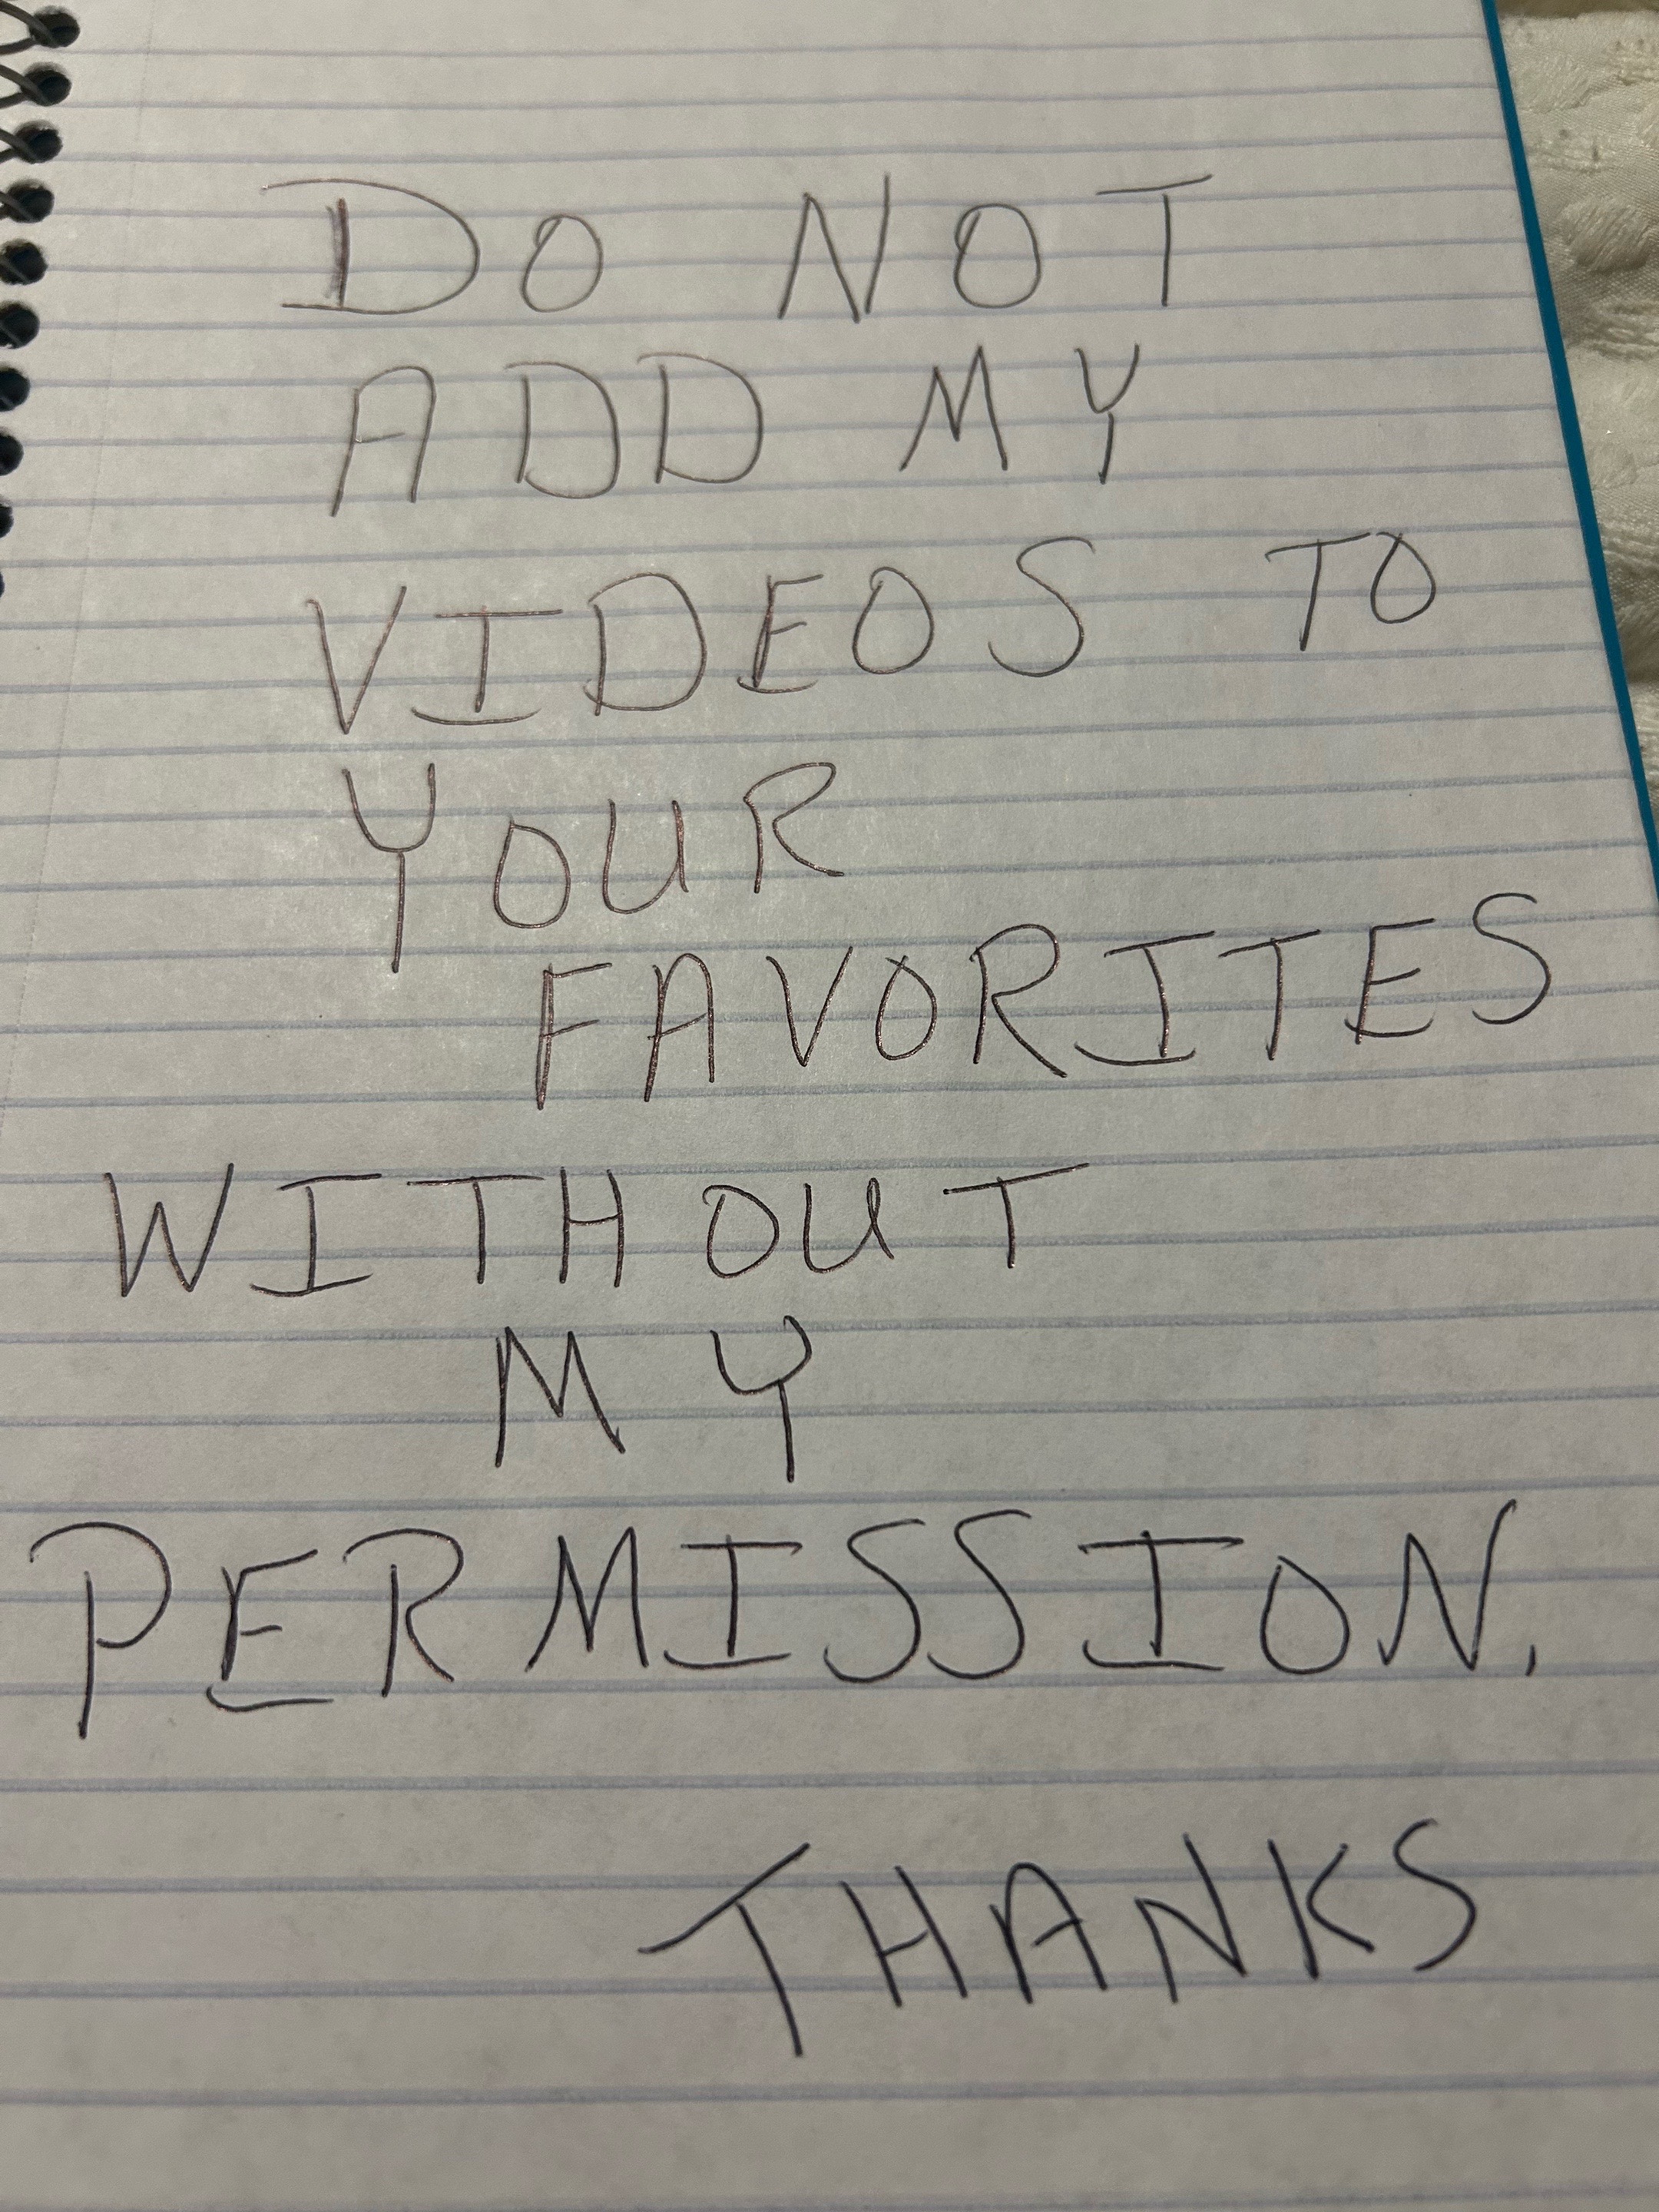 DO NOT
ADD MY
VIDEOS TO
YOUR
FAVORITES
WITHOUT
MY
PERMISSION.
THANKS